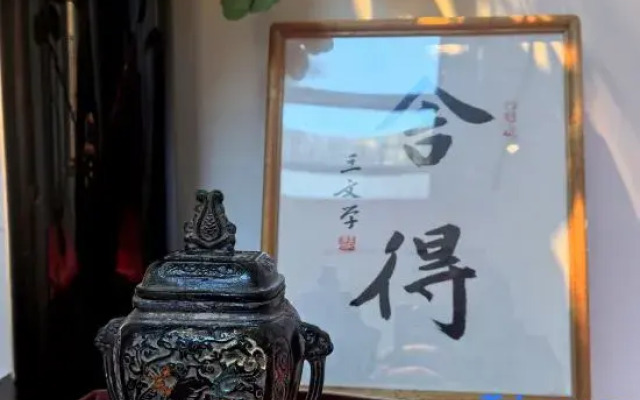 舍得
王文学